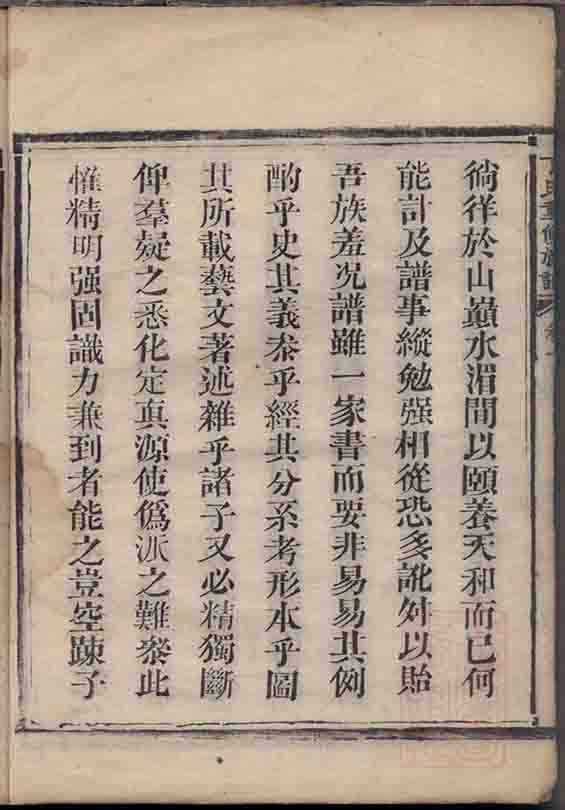 徜徉於山巔水湄間以頤養天和而已何
能計及譜事縱勉强相從恐多訛舛以貽
吾族羞况譜雖一家書而要非易易其例
酌乎史其義叅乎經其分系考形本乎圖
其所載藝文著述雜乎諸子又必精獨斷
俾羣疑之悉化定真源使僞派之難叅此
惟精明强固識力兼到者能之豈空疎子